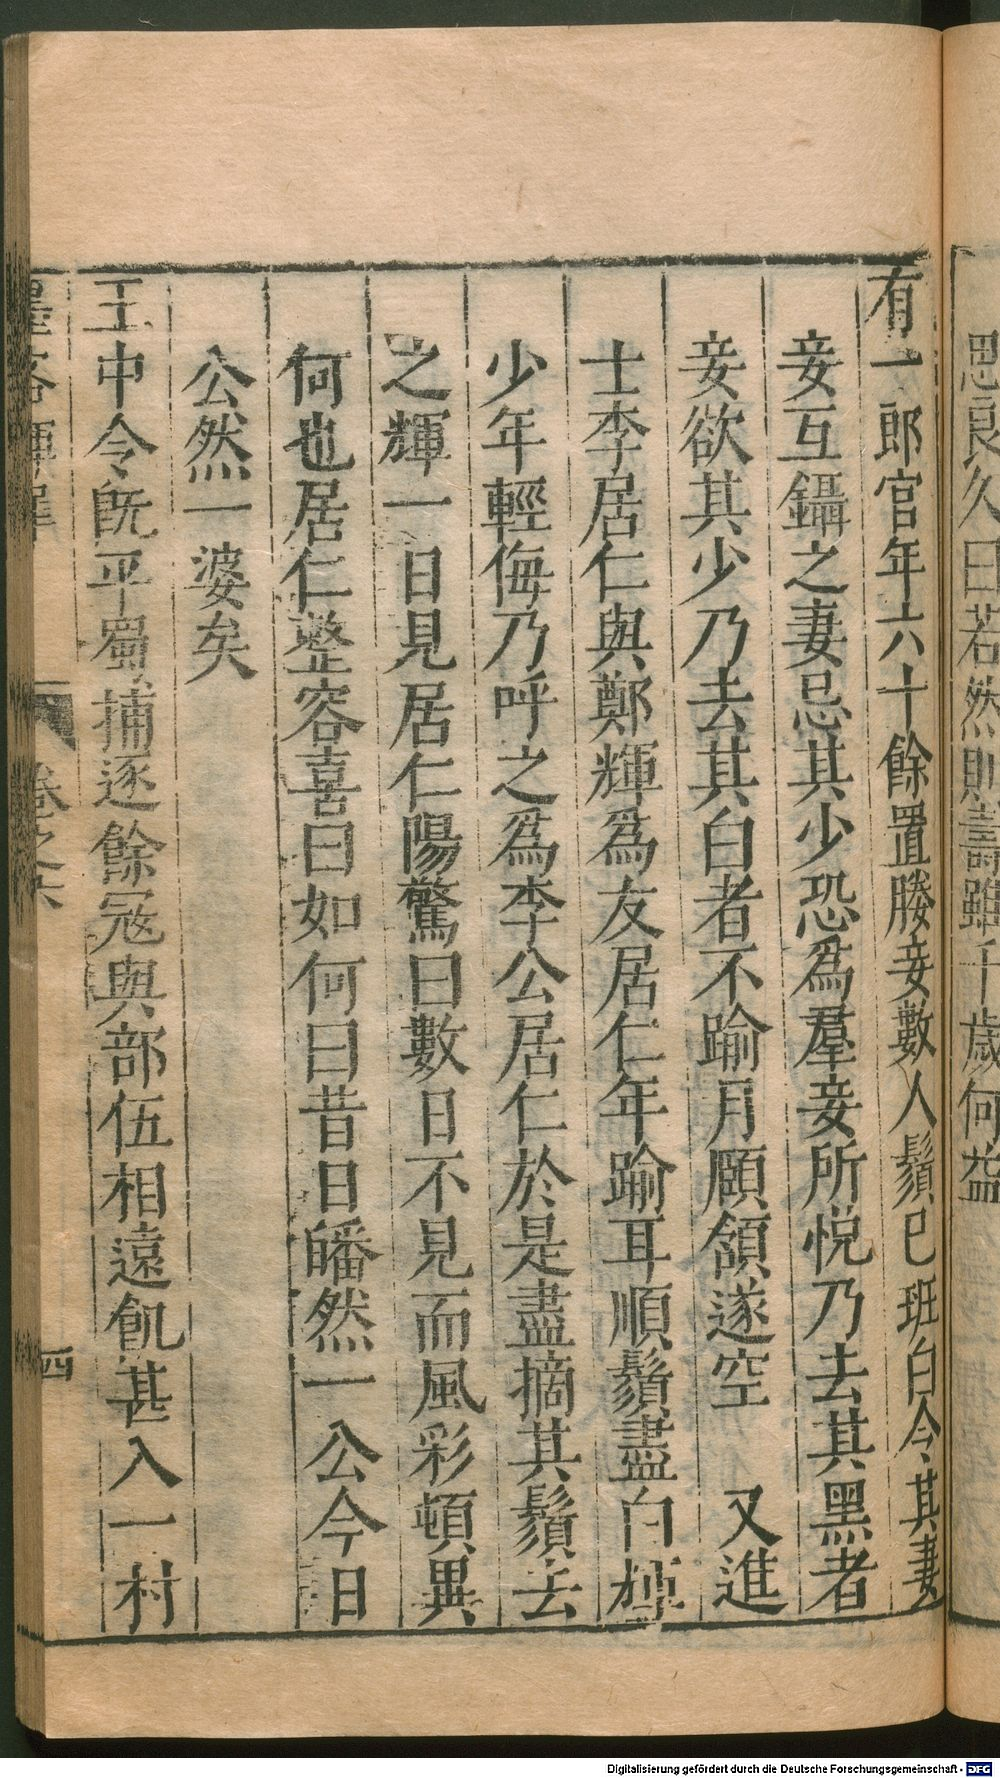 思良久曰若然則壽雖千歲何益
有一郎官年六十餘置媵妾數人鬚已班白令其妻
妾互鑷之妻忌其少恐爲羣妾所悅乃去其黑者
妾欲其少乃去其白者不踰月頤頷遂空 又進
士李居仁與鄭輝爲友居仁年踰耳順鬚盡白
少年輕侮乃呼之爲李公居仁於是盡摘其鬚去
之輝一日見居仁陽驚曰數日不見而風彩頓異
何也居仁整容喜曰如何曰昔日皤然一公今日
公然一婆矣
王中令旣平蜀捕逐餘冦與部伍相遠飢甚入一村
墨客揮犀 卷之六 四
Digitalisierung gefördert durch die Deutsche Forschungsgemeinschaft - DFG